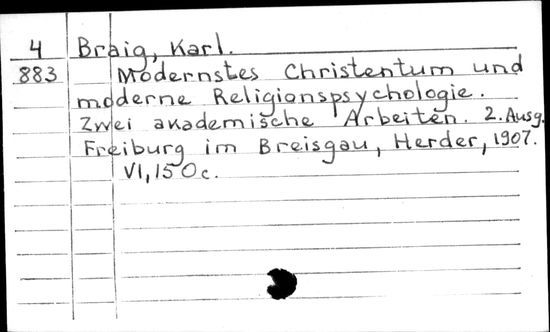 4 Braig, Karl.
883 Modernstes Christentum und
moderne Religionspsychologie.
Zwei akademische Arbeiten. 2. Ausg.
Freiburg im Breisgau, Herder, 1907.
VI, 150 c.